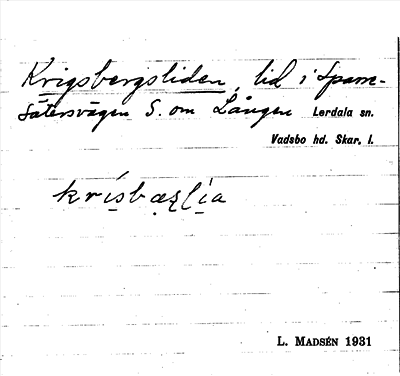 Krigsbergsliden, lid i Spam-
sätersvägen S. om Lången Lerdala sn.
Vadsbo hd. Skar. l.
krísbæꞎlía
L. MADSÉN 1931